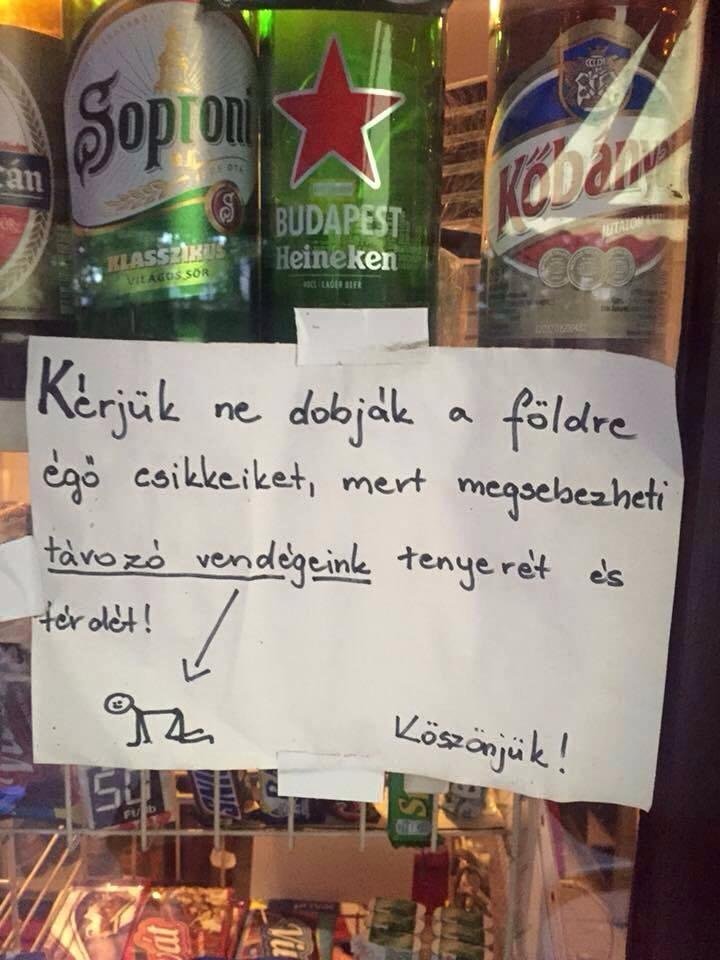 án
Soproni
KLASSZIKUS
VILÁGOS SÖR
BUDAPEST
Heineken
LAGER BEER
Kőbánya
Kérjük ne dobják a földre
égő csikkeiket, mert megsebezheti
távozó vendégeink tenyerét és
térdét!
Köszönjük!
Ft/db